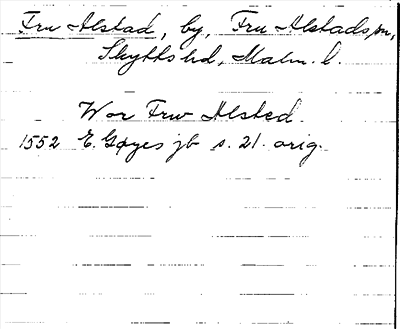 Fru Alstad, by, Fru Alstads sn,
Skytts hd, Malm. l.
Wor Frw Alsted.
1552 E. Gøyes jb s. 21. orig.